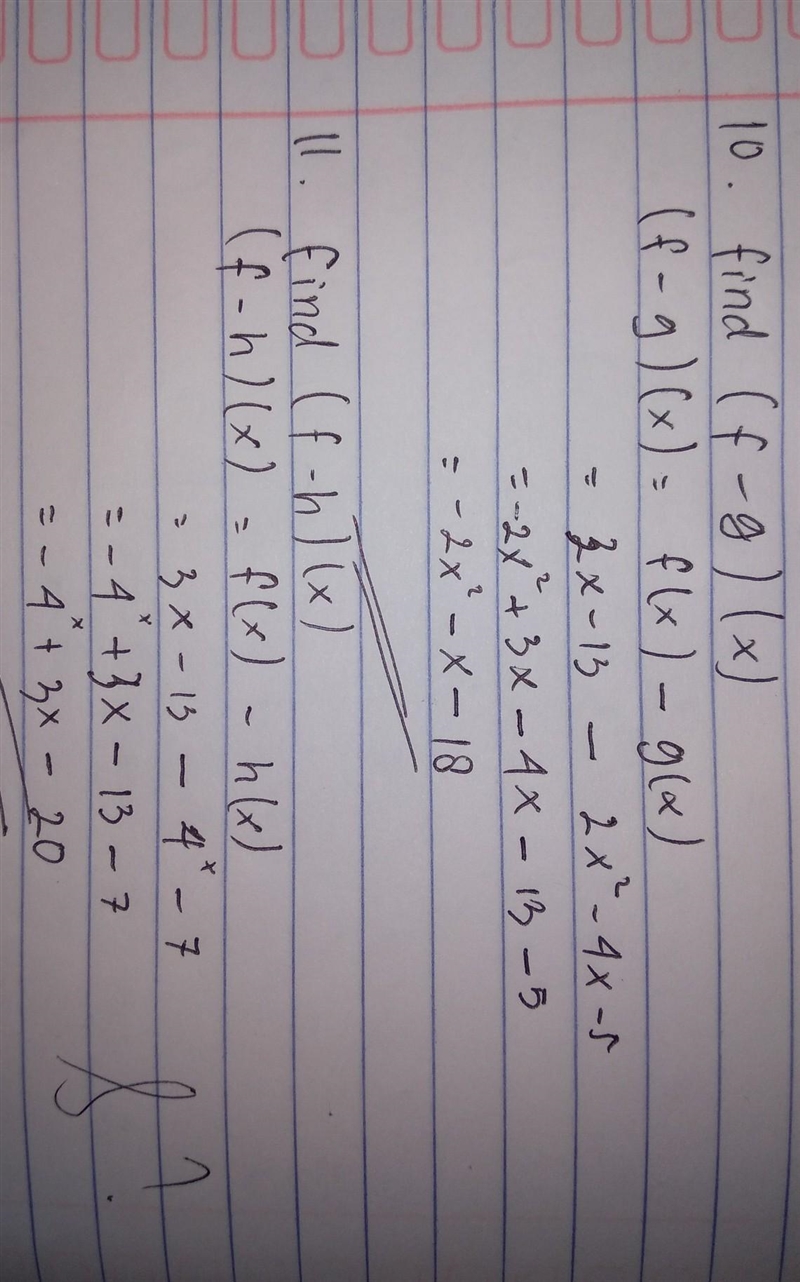 10. find (f - g)(x)
(f - g)(x) = f(x) - g(x)
= 3x - 13 - 2x² - 4x - 5
= -2x² + 3x - 4x - 13 - 5
= -2x² - x - 18
11. find (f - h)(x)
(f - h)(x) = f(x) - h(x)
= 3x - 13 - 4ˣ - 7
= -4ˣ + 3x - 13 - 7
= -4ˣ + 3x - 20